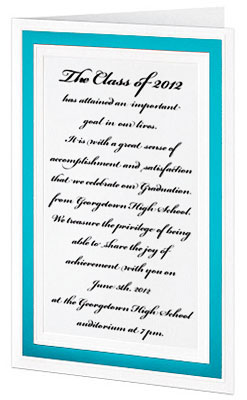 The Class of 2012
has attained an important
goal in our lives.
It is with a great sense of
accomplishment and satisfaction
that we celebrate our Graduation
from Georgetown High School.
We treasure the privilege of being
able to share the joy of
achievement with you on
June 5th, 2012
at the Georgetown High School
auditorium at 7 pm.